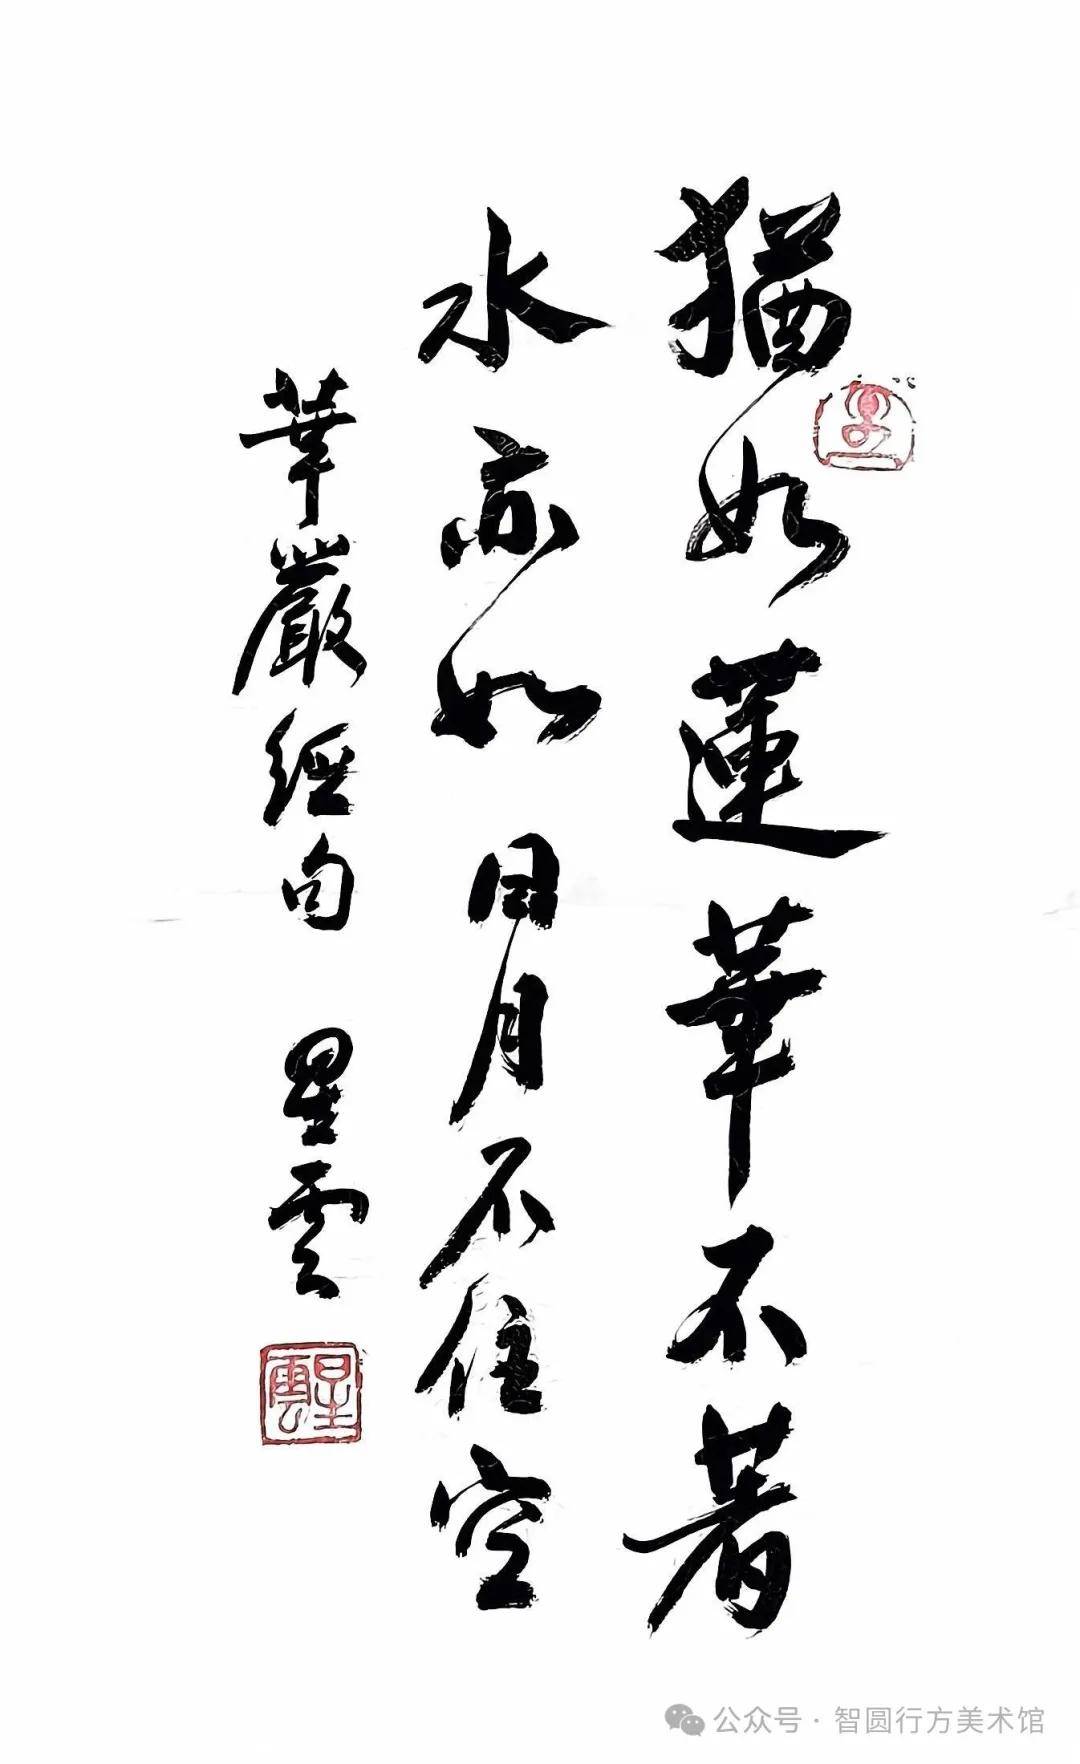 猶如蓮華不著
水亦如日月不住空
華嚴經句 星雲
星雲
公众号·智圆行方美术馆